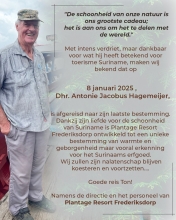 "De schoonheid van onze natuur is
ons grootste cadeau;
het is aan ons om het te delen met
de wereld."
Met intens verdriet, maar dankbaar
voor wat hij heeft betekend voor
toerisme Suriname, maken wij
bekend dat op
8 januari 2025 ,
Dhr. Antonie Jacobus Hagemeijer,
is afgereisd naar zijn laatste bestemming.
Dankzij zijn liefde voor de schoonheid
van Suriname is Plantage Resort
Frederiksdorp ontwikkeld tot een unieke
bestemming van warmte en
geborgenheid maar vooral erkenning
voor het Surinaams erfgoed.
Wij zullen zijn nalatenschap blijven
koesteren en voortzetten....
Goede reis Ton!
Namens de directie en het personeel van
Plantage Resort Frederiksdorp